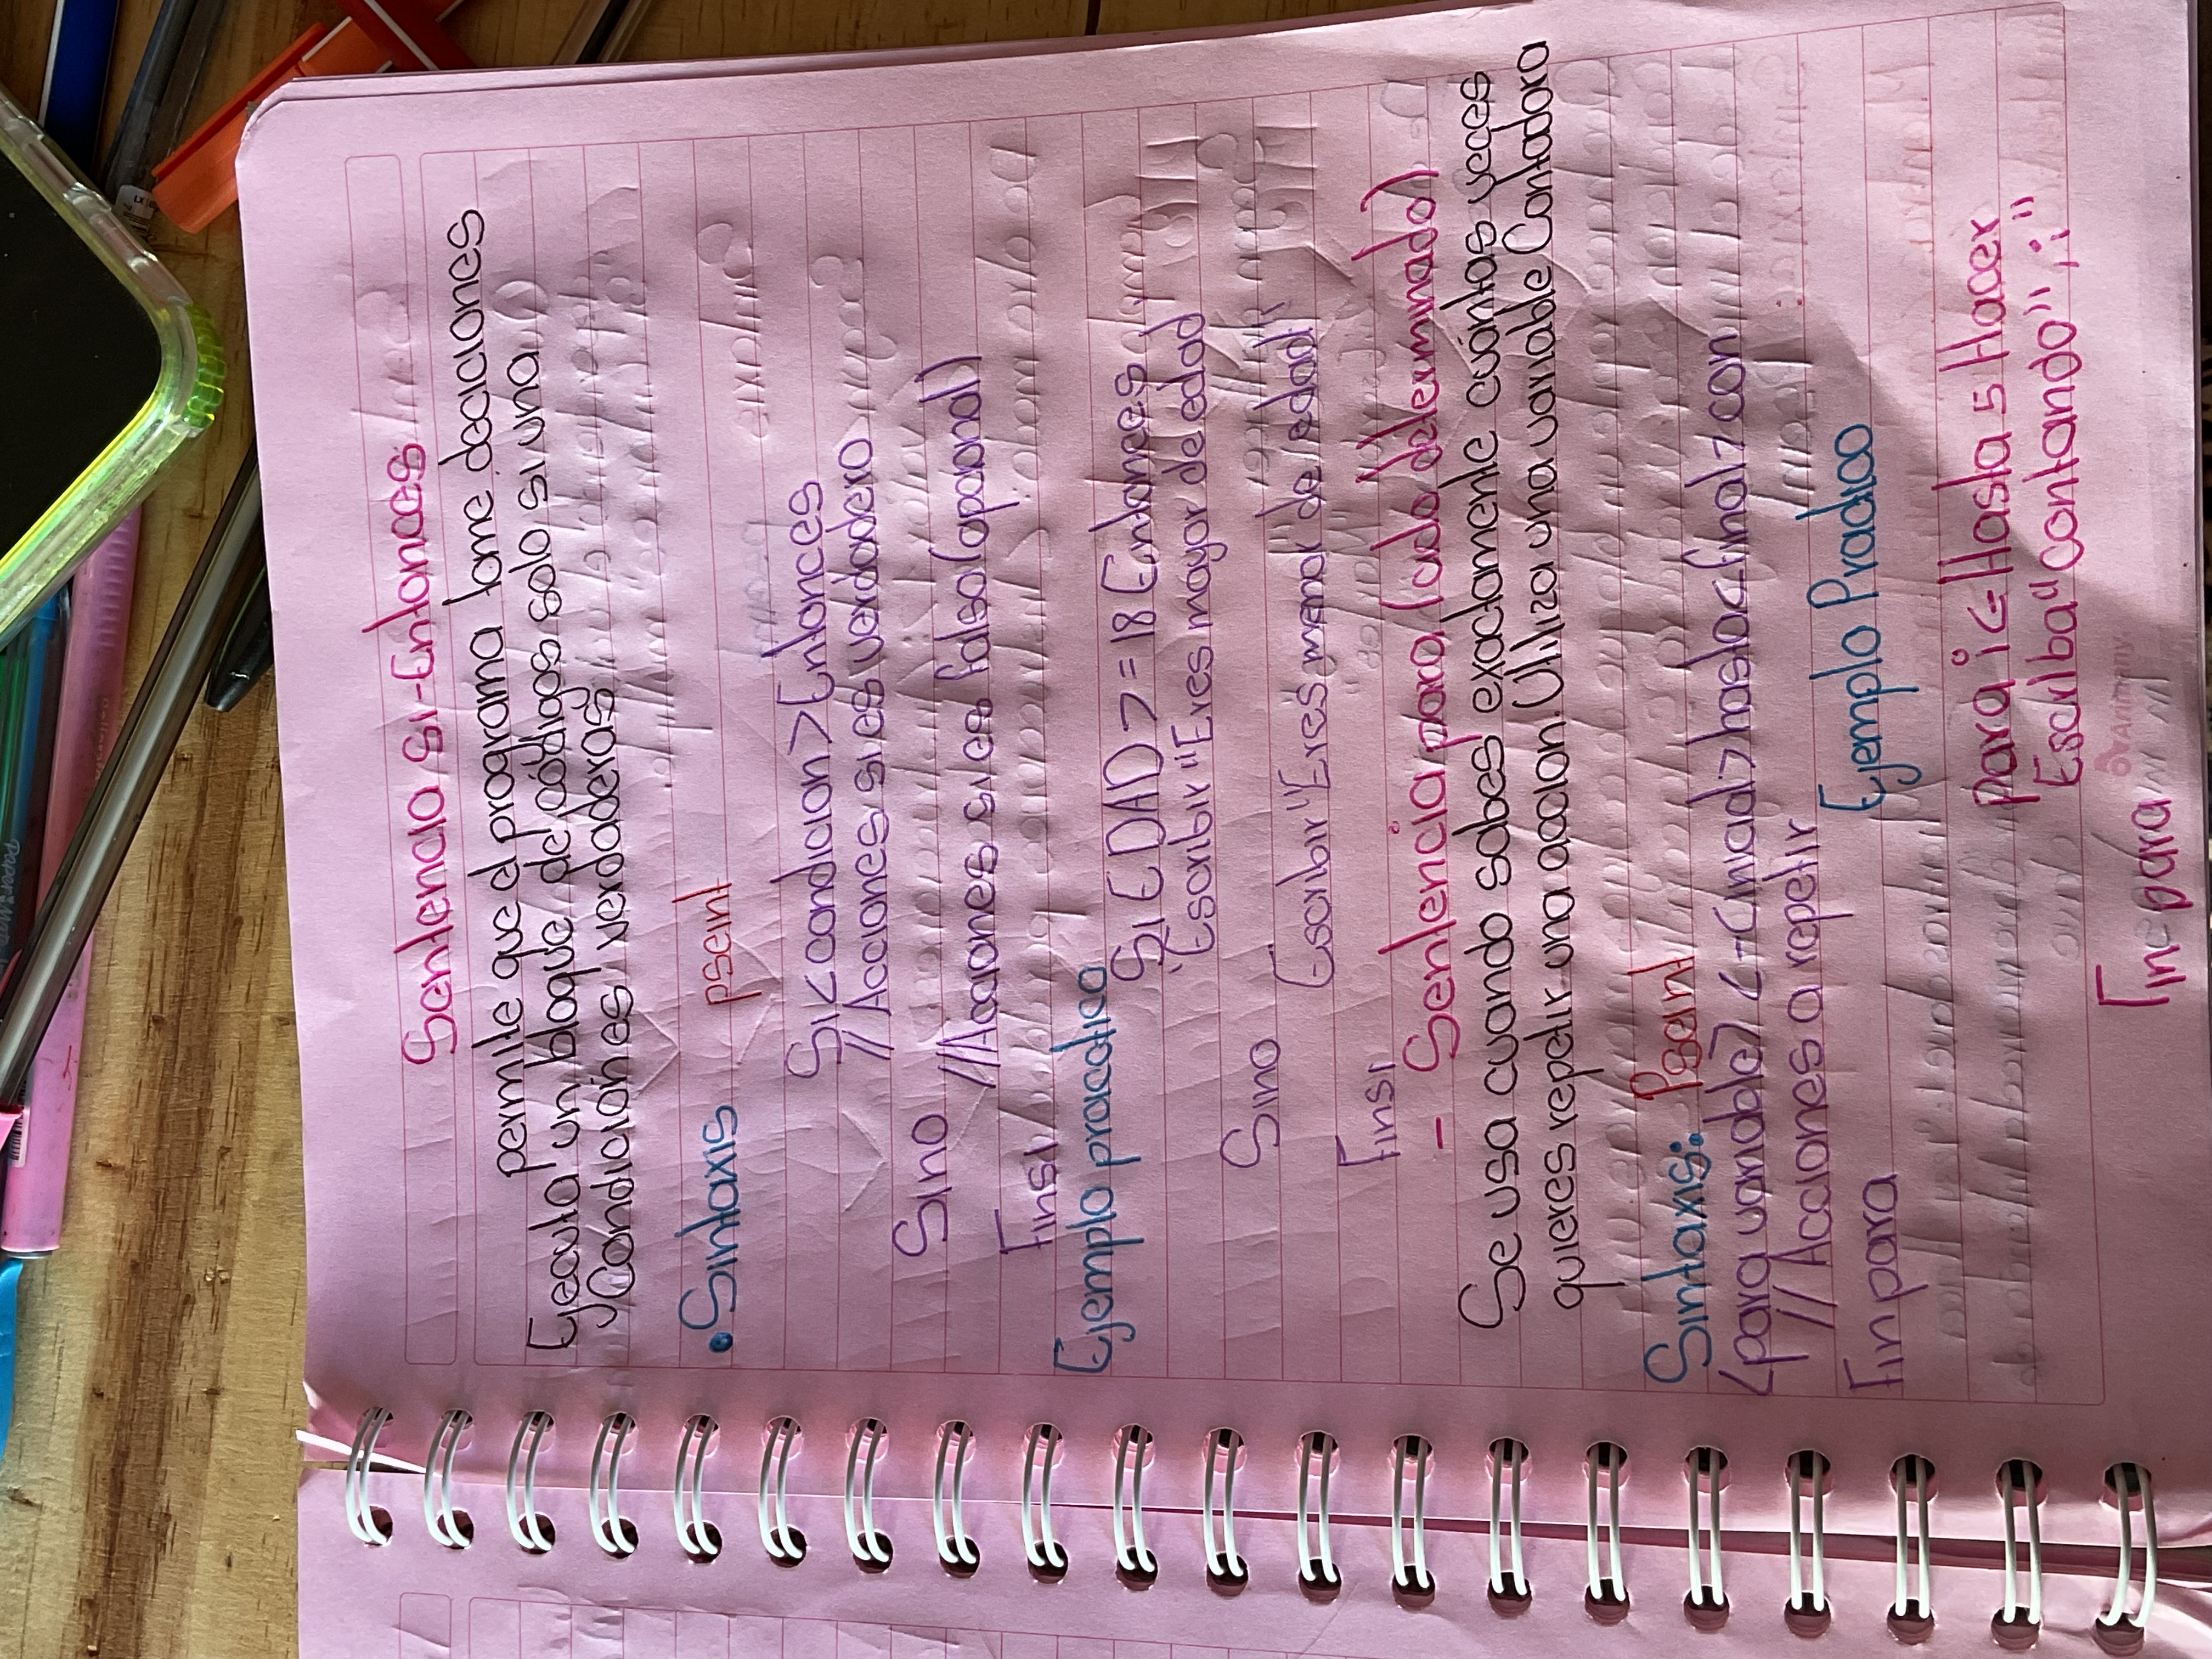 Sentencia Si-Entonces
permite que el programa tome deciciones
Ejecuta un bloque de códigos solo si una
Condiciones verdaderas
• Sintaxis pseint
Si<condicion>Entonces
//Acciones si es verdadero
Sino
//Acciones si es falso (opcional)
Finsi
Ejemplo practico
Si EDAD >= 18 Entonces
Escribir "Eres mayor de edad
Sino
Escribir "Eres menor de edad"
Finsi
- Sentencia para (ciclo determinado)
Se usa cuando sabes exactamente cuántas veces
quieres repetir una accion. Utiliza una variable Contadora
Sintaxis: Pseint
<para variable> <-<inicial> hasta<final> con
//Acciones a repetir
Fin para
Ejemplo Practico
Para i <= Hasta 5 Hacer
Escriba "contando" ; "
Fin-para